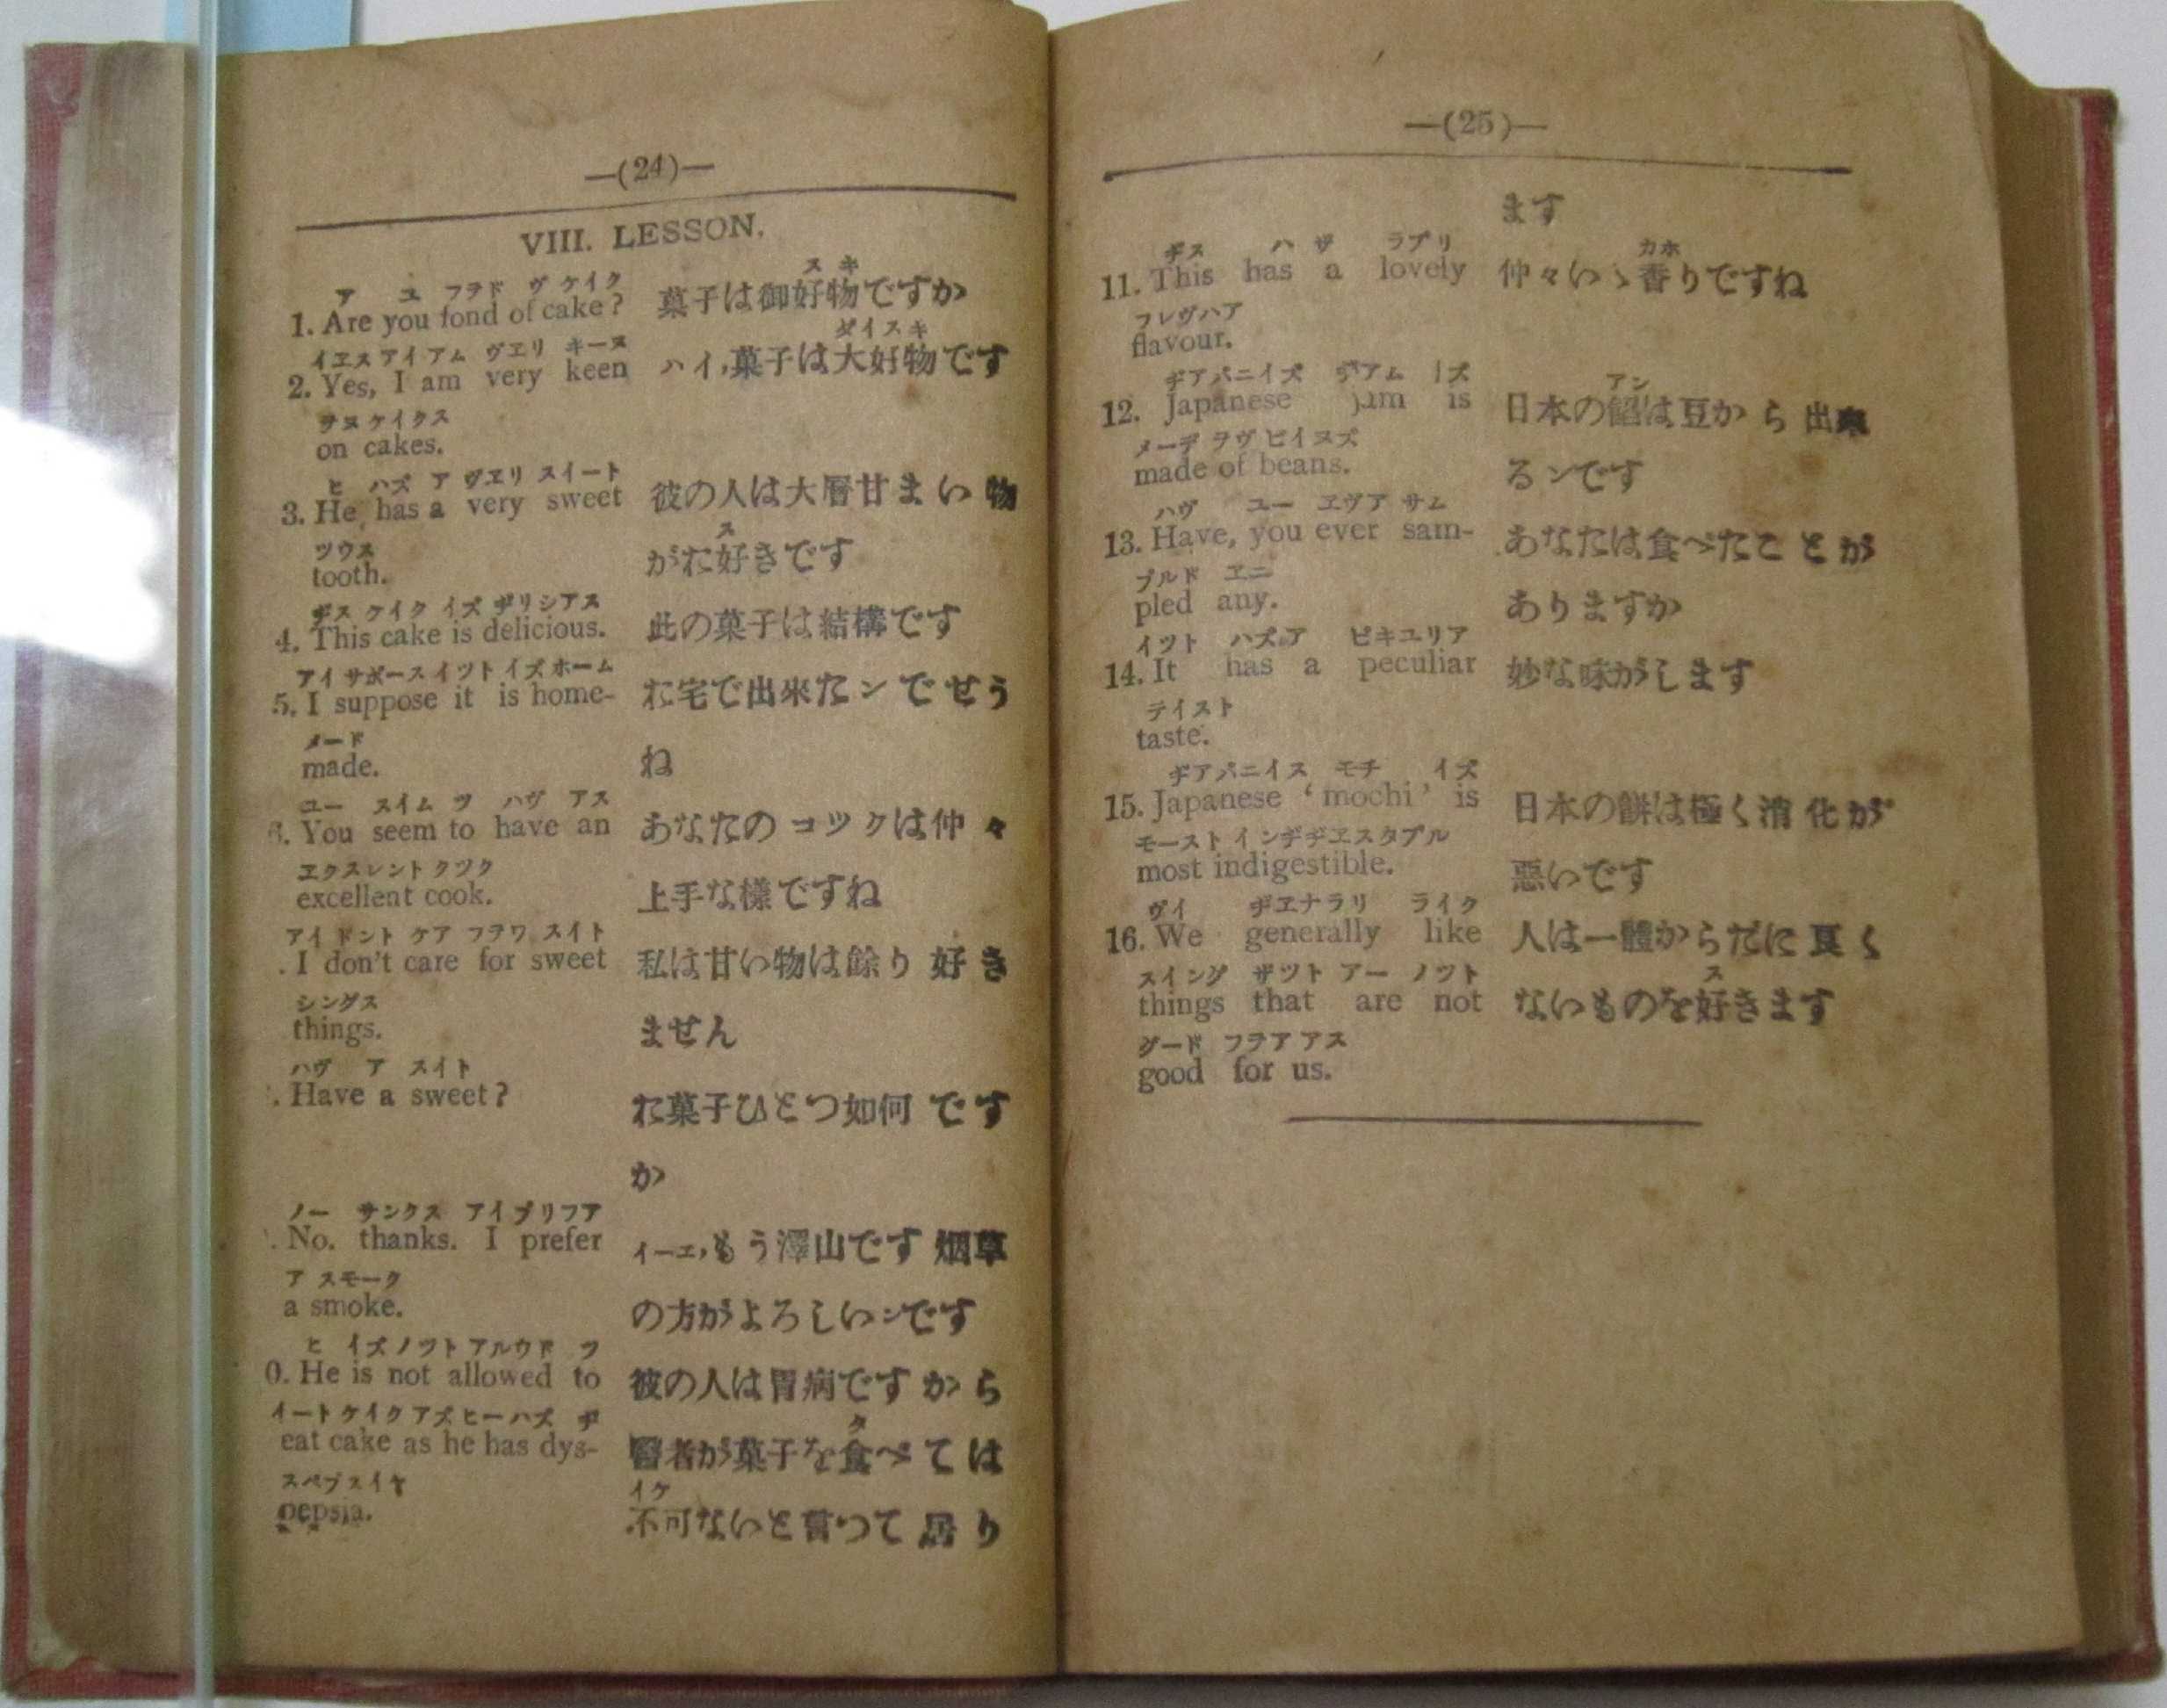 —(24)—
VIII. LESSON.
ア ユ フヲド ヴ ケイク
スキ
1. Are you fond of cake?
菓子は御好物ですか
イヱス アイ アム ヴエリ キーヌ
ダイスキ
2. Yes, I am very keen
ハイ,菓子は大好物です
ヲヌ ケイクス
on cakes.
ヒ ハズ ア ヴヱリ スイート
3. He has a very sweet
彼の人は大層甘まい物
ツウス
ス
tooth.
がお好きです
ヂス ケイク イズ デリシアス
4. This cake is delicious.
此の菓子は結構です
アイ サポース イツト イズ ホーム
5. I suppose it is home-
お宅で出來たンでせう
メード
made.
ね
ユー スイム ツ ハヴ アス
6. You seem to have an
あなたのコツクは仲々
ヱクスレント クツク
excellent cook.
上手な樣ですね
アイ ドント ケア フヲワ スイト
. I don't care for sweet
私は甘い物は餘り好き
シングス
things.
ません
ハヴ ア スイト
. Have a sweet?
お菓子ひとつ如何です
か
ノー サンクス アイ プリフア
. No. thanks. I prefer
イーエ,もう澤山です烟草
ア スモーク
a smoke.
の方がよろしいンです
ヒ イズ ノツト アルウド ツ
0. He is not allowed to
彼の人は胃病ですから
イート ケイク アズ ヒー ハズ ヂ
タ
eat cake as he has dys-
醫者が菓子を食べては
スペプスイヤ
イケ
pepsia.
不可ないと言つて居り
—(25)—
ます
ヂス ハザ ラブリ
カホ
11. This has a lovely
仲々いゝ香りですね
フレヴハア
flavour.
ヂアパニイズ ヂアム イズ
アン
12. Japanese jam is
日本の餡は豆から出來
メーデ ヲヴ ビイヌズ
made of beans.
るンです
ハヴ ユー ヱヴア サム
13. Have, you ever sam-
あなたは食べたことが
プルド ヱニ
pled any.
ありますか
イツト ハズ ア ピキユリア
14. It has a peculiar
妙な味がします
テイスト
taste.
ヂアパニイス モチ イズ
15. Japanese ‘mochi’ is
日本の餅は極く消化が
モースト インヂヂヱスタブル
most indigestible.
惡いです
ヴイ ヂヱナラリ ライク
16. We generally like
人は一體からだに良く
スイング ザツト アー ノツト
ス
things that are not
ないものを好きます
グード フヲア アス
good for us.